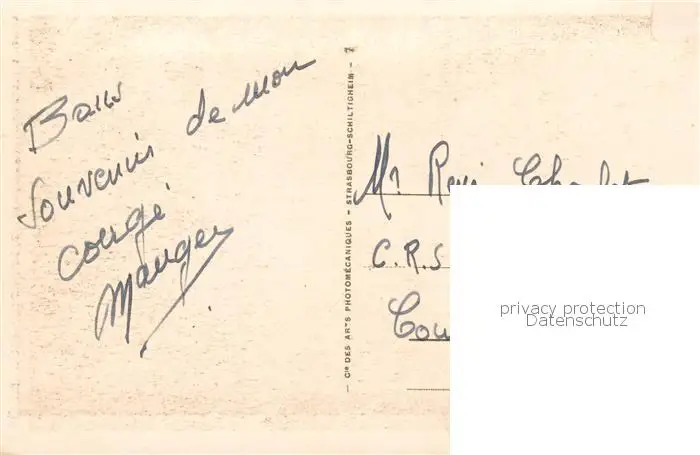 Bons
Souvenirs de mon
congé
Mauger
Cie DES ARTS PHOTOMÉCANIQUES - STRASBOURG-SCHILTIGHEIM - 7
Mr René
C.R.S
privacy protection
Datenschutz